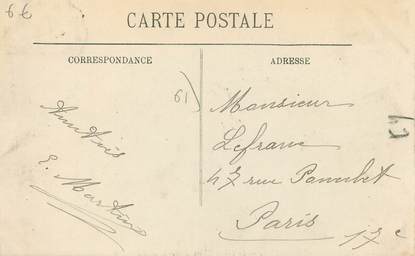 6€
CARTE POSTALE
CORRESPONDANCE
ADRESSE
61
Monsieur
Lefranc
47 rue
Paris 17e
Amitiés
E. Martin